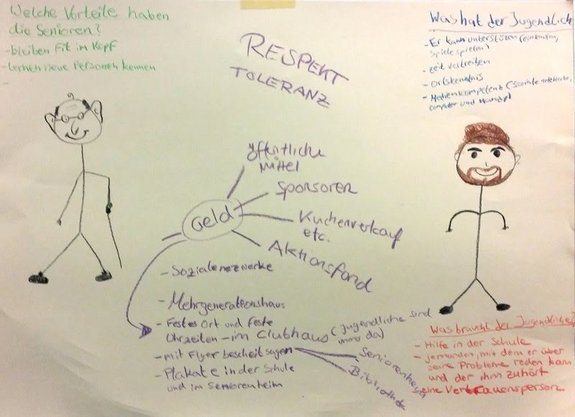 Welche Vorteile haben
die Senioren?
- bleiben Fit im Kopf
- lernen neue Personen kennen
RESPEKT
TOLERANZ
Was hat der Jugendliche
- Er kann unterstützen (einkaufen,
Spiele spielen)
- Zeit vertreiben
- Ortskenntnis
- Medienkompetent (Soziale netzwerke,
computer und Handy)
Geld
öffentliche
Mittel
Sponsoren
Kuchenverkauf
etc.
Aktionsfond
- Sozialenezwerke
- Mehrgenerationshaus
- Festes Ort und feste
Uhrzeiten - im Clubhaus (jugendliche sind
immer da)
- mit Flyer bescheit sagen
- Plakate in der Schule
und im Seniorenheim
Seniorenheim
Bibliothek
Was braucht der Jugendliche?
- Hilfe in der Schule
- jemanden, mit dem er über
seine Probleme reden kann
und der ihm zuhört
- eine Vertrauensperson